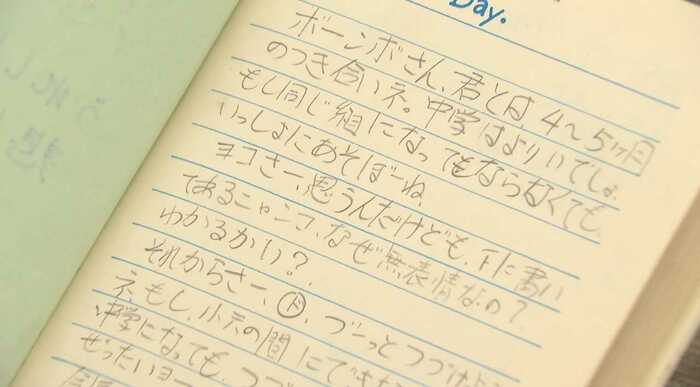 Day.
ボーンボさん、君とは4〜5ヶ月
のつき合いネ。中学はよりいでしょ
もし同じ組になってもならなくても、
いっしょにあそぼーね
ヨコさー、思うんだけども、下に書い
てあるニャンコ、なぜ無表情なの?
わかるかい?
それからさー、ド、ズーっとつづけよ
ネ、もし、小六の間にでき
中学になっても、つづ
ぜったいヨー